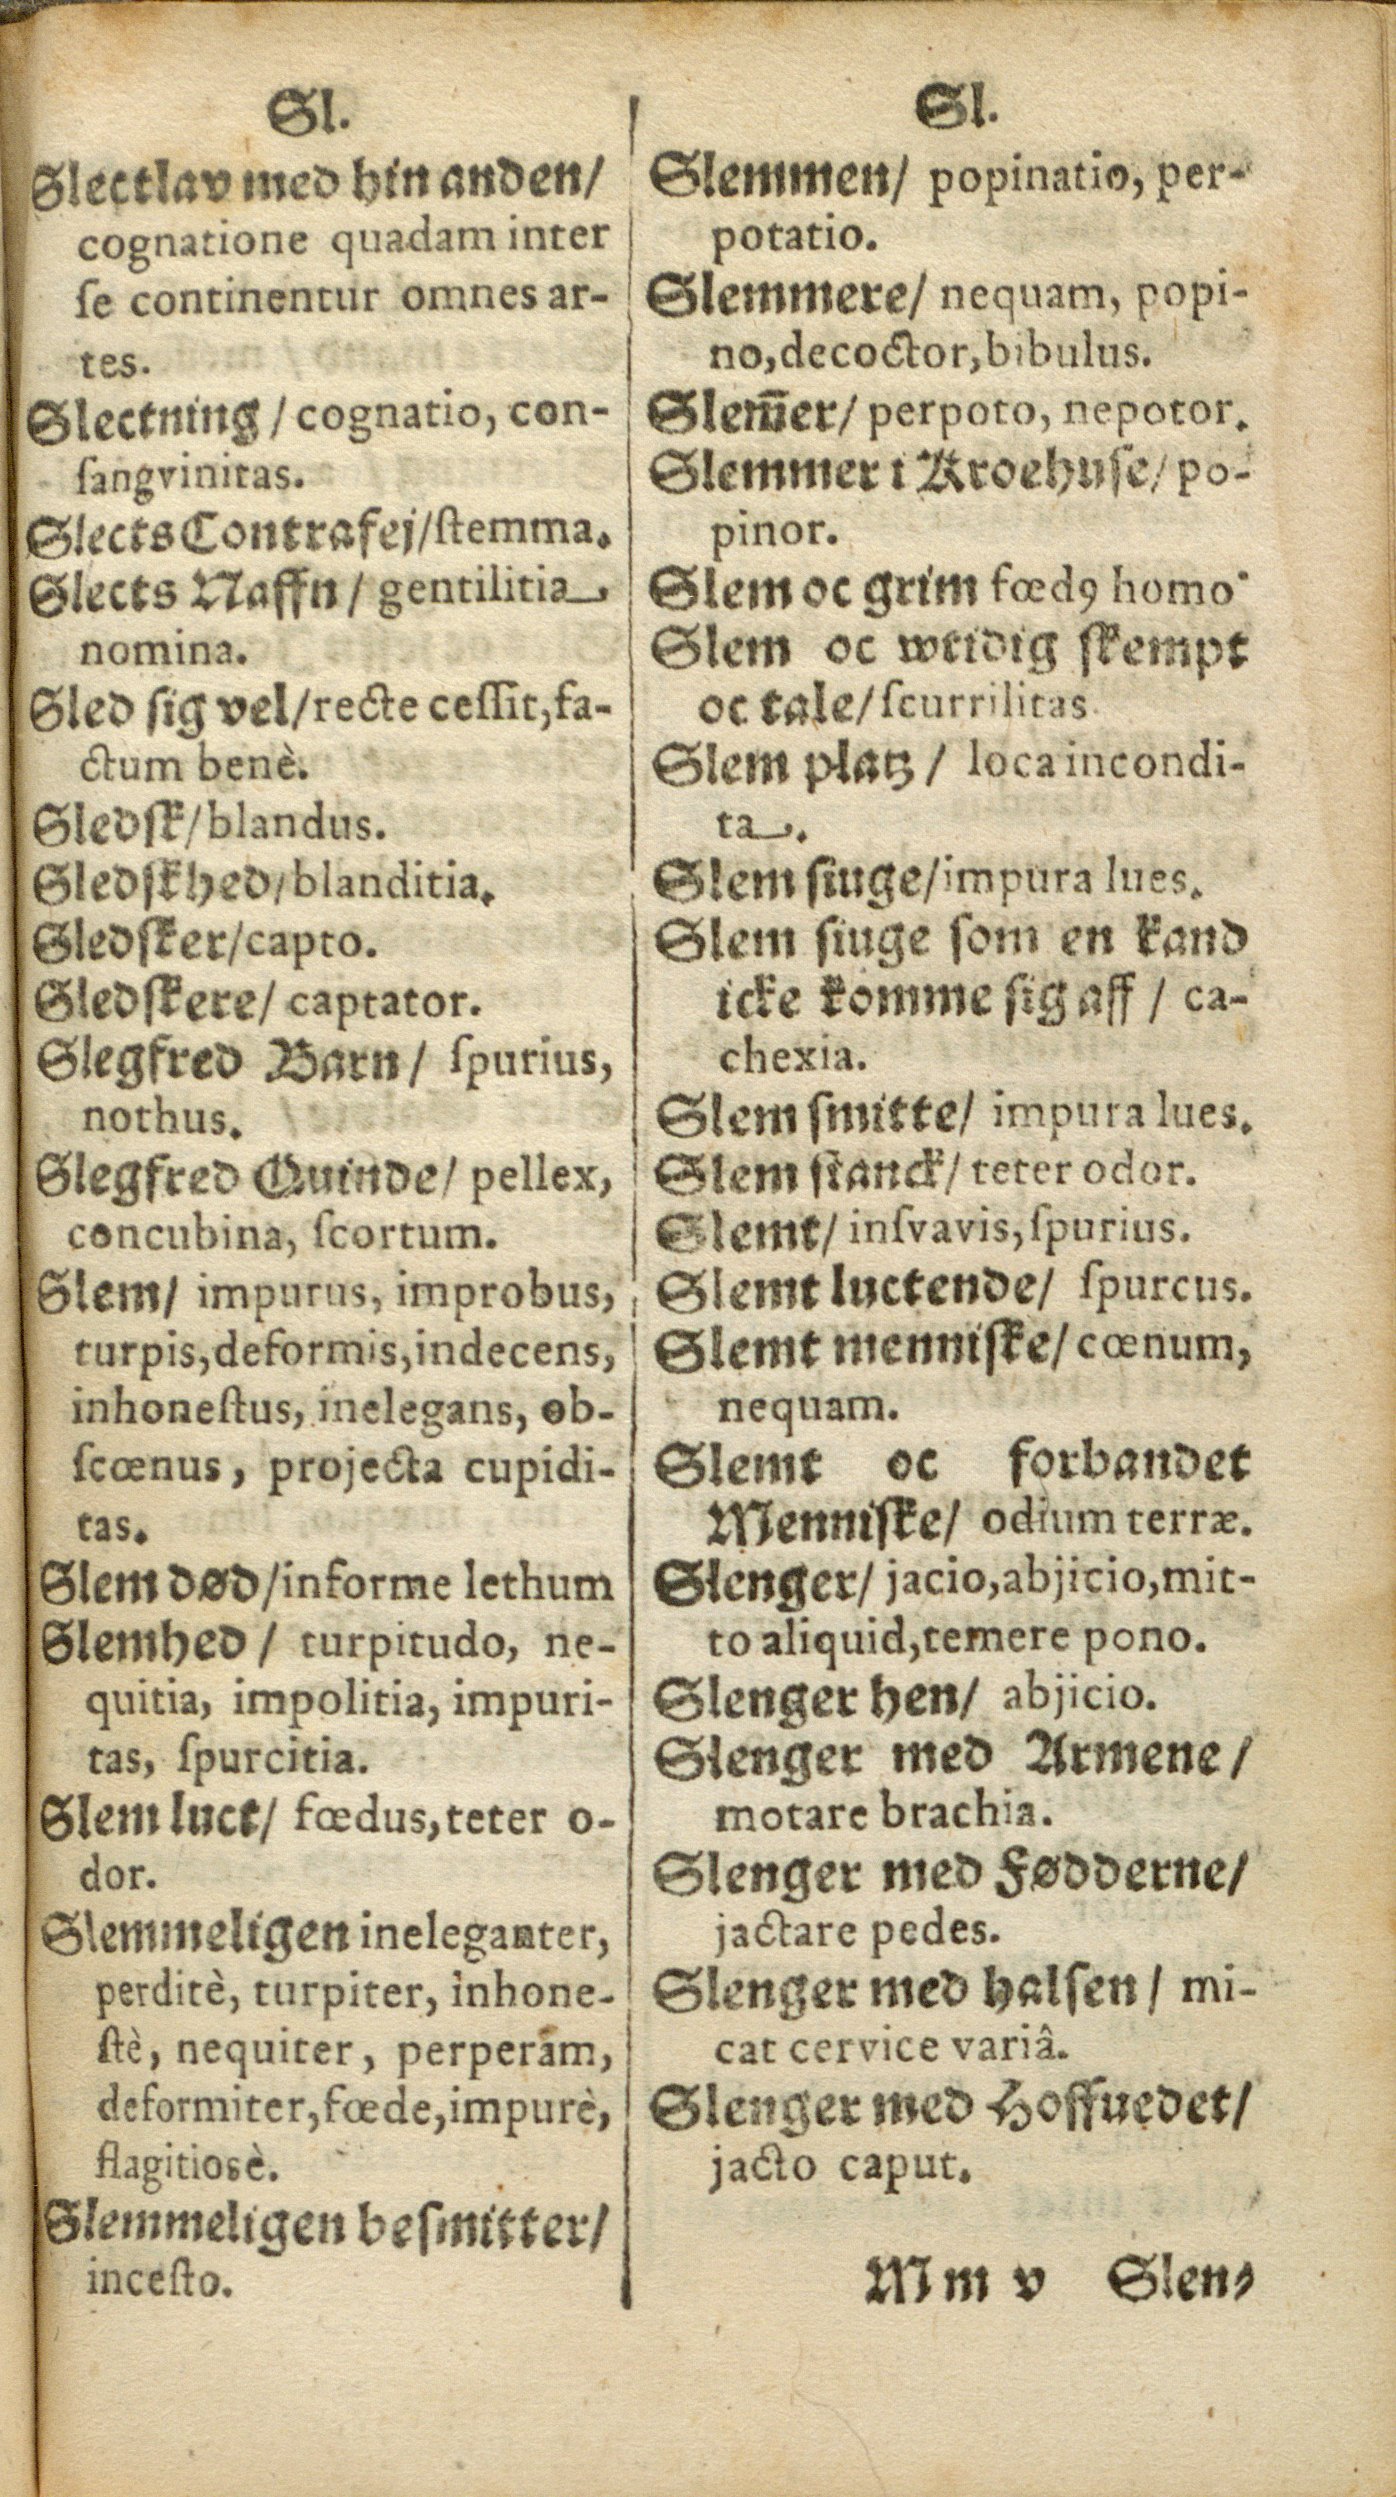 Sl.
Slectlav med hin anden/
cognatione quadam inter
ſe continentur omnes ar-
tes.
Slectning / cognatio, con-
ſangvinitas.
Slects Contrafej/ſtemma.
Slects Naffn / gentilitia
nomina.
Sled ſig vel/recte ceſſit,fa-
ctum benè.
Sledſk/blandus.
Sledſkhed/blanditia.
Sledſker/capto.
Sledſkere/ captator.
Slegfred Barn/ ſpurius,
nothus.
Slegfred Quinde/ pellex,
concubina, ſcortum.
Slem/ impurus, improbus,
turpis,deformis,indecens,
inhoneſtus, inelegans, ob-
ſcœnus, projecta cupidi-
tas.
Slem død/informe lethum
Slemhed / turpitudo, ne-
quitia, impolitia, impuri-
tas, ſpurcitia.
Slem luct/ fœdus,teter o-
dor.
Slemmeligen ineleganter,
perditè, turpiter, inhone-
ſtè, nequiter, perperàm,
deformiter,fœde,impurè,
flagitiosè.
Slemmeligen beſmitter/
inceſto.
Sl.
Slemmen/ popinatio, per-
potatio.
Slemmere/ nequam, popi-
no,decoctor,bibulus.
Slem̅er/ perpoto, nepotor.
Slemmer i Kroehuſe/ po-
pinor.
Slem oc grim fœdꝯ homo
Slem oc wtidig ſkempt
oc tale/ſcurrilitas
Slem platz / loca incondi-
ta.
Slem ſiuge/impura lues.
Slem ſiuge ſom en kand
icke komme ſig aff / ca-
chexia.
Slem ſmitte/ impura lues.
Slem ſtanck/ teter odor.
Slemt/ inſvavis,ſpurius.
Slemt luctende/ ſpurcus.
Slemt menniſke/ cœnum,
nequam.
Slemt oc forbandet
Menniſke/ odium terræ.
Slenger/ jacio,abjicio,mit-
to aliquid,temere pono.
Slenger hen/ abjicio.
Slenger med Armene/
motare brachia.
Slenger med Fødderne/
jactare pedes.
Slenger med halſen/ mi-
cat cervice variâ.
Slenger med Hoffuedet/
jacto caput.
Mm v Slen-